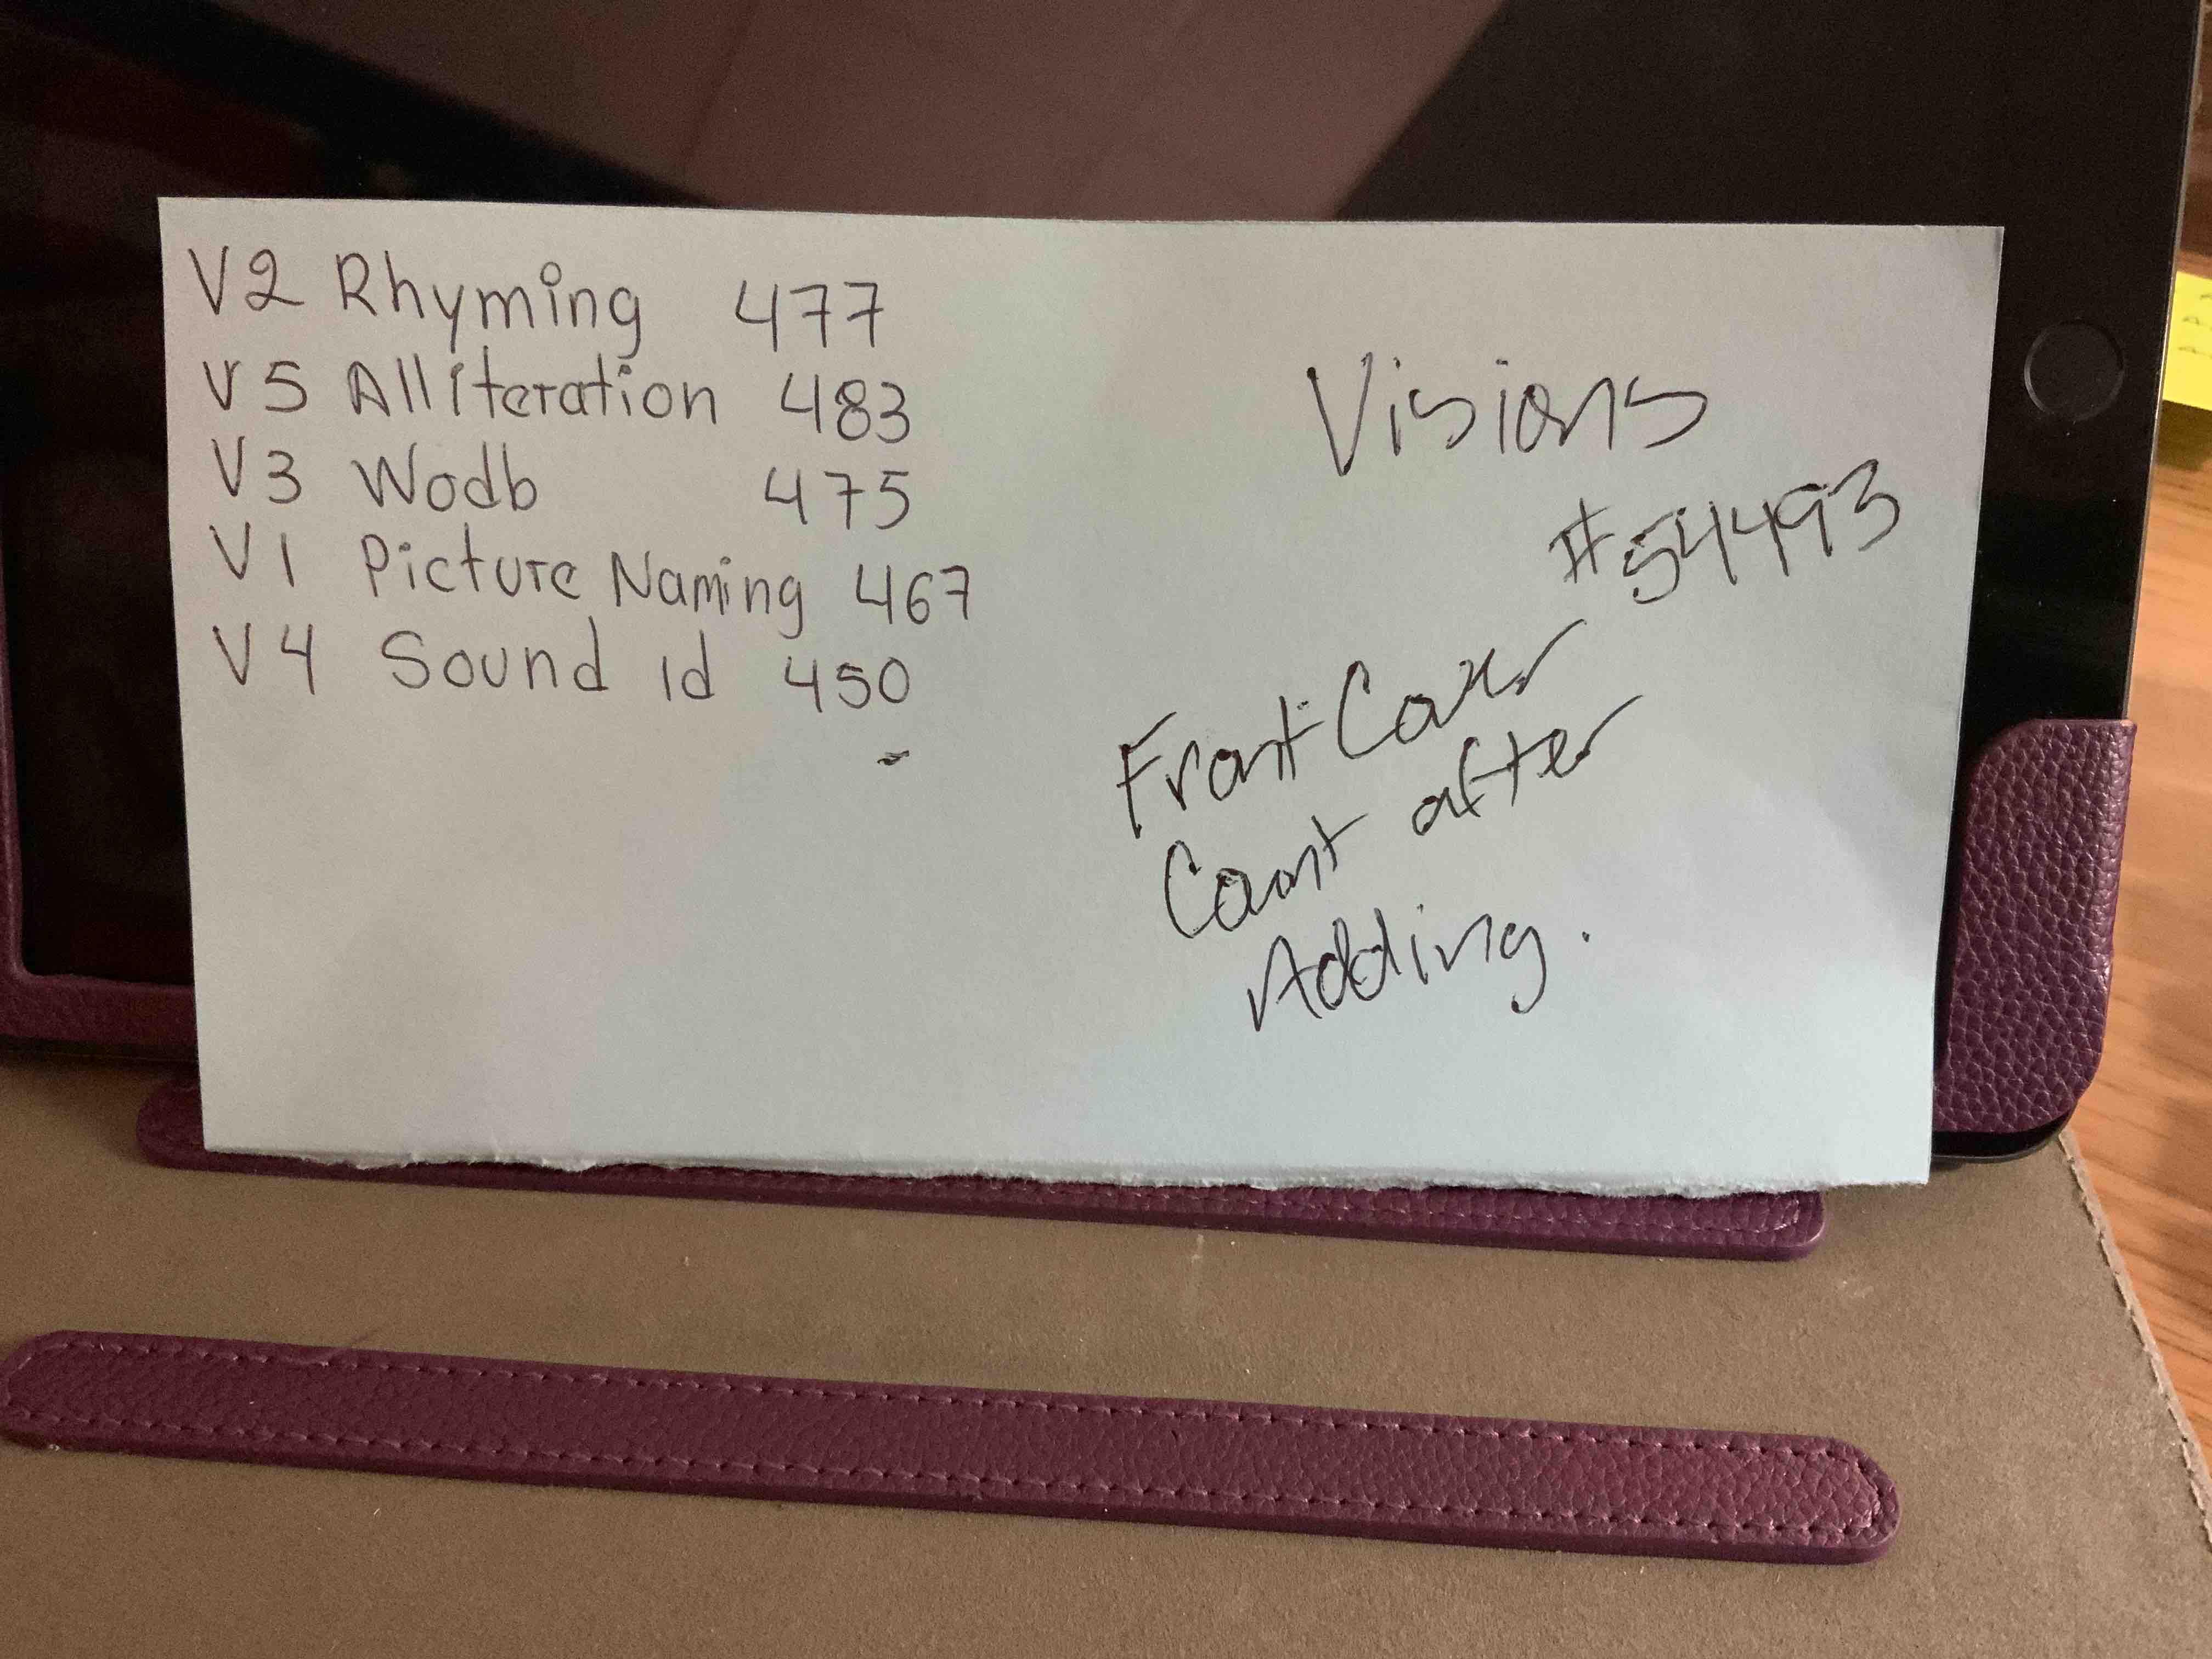 V2 Rhyming 477
V5 Alliteration 483
V3 Wodb 475
V1 Picture Naming 467
V4 Sound id 450
Visions
#54493
Front Cover
Count after
Adding.